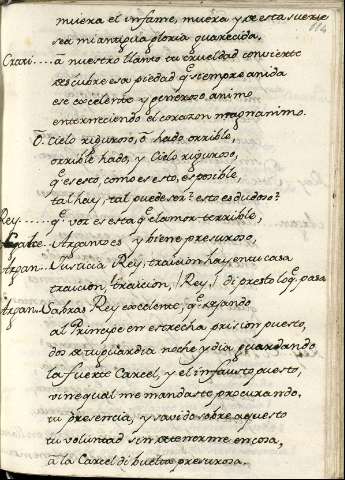 114
muera el infame, muera y de esta suerte
sea mi antigua gloria guarecida,
Crari.... a nuestro llanto tu crueldad convierte
descubre esa piedad q. siempre anida
ese excelente y generoso animo
enterneciendo el corazon magnanimo.
O Cielo riguroso, ô hado orrible,
orrible hado, y Cielo riguroso,
q. es esto, como es esto, es posible,
tal hay, tal puede ser? esto es dudoso?
Rey...... q. voz es esta q. clamor terrible,
Arganzes y biene presuroso,
Arpan.. Justicia Rey, traicion hay en tu casa
traicion, traicion, Rey di presto lo q. pasa
Arpan.. Sabras Rey excelente, q. estando
al Principe en estrecha prision puesto,
dos de tu guardia noche y dia guardando
la fuerte Carcel, y el infausto puesto,
vine qual me mandaste procurando,
tu presencia, y savido sobre aquesto
tu voluntad sin detenerme en cosa,
a la Carcel di buelta presurosa.